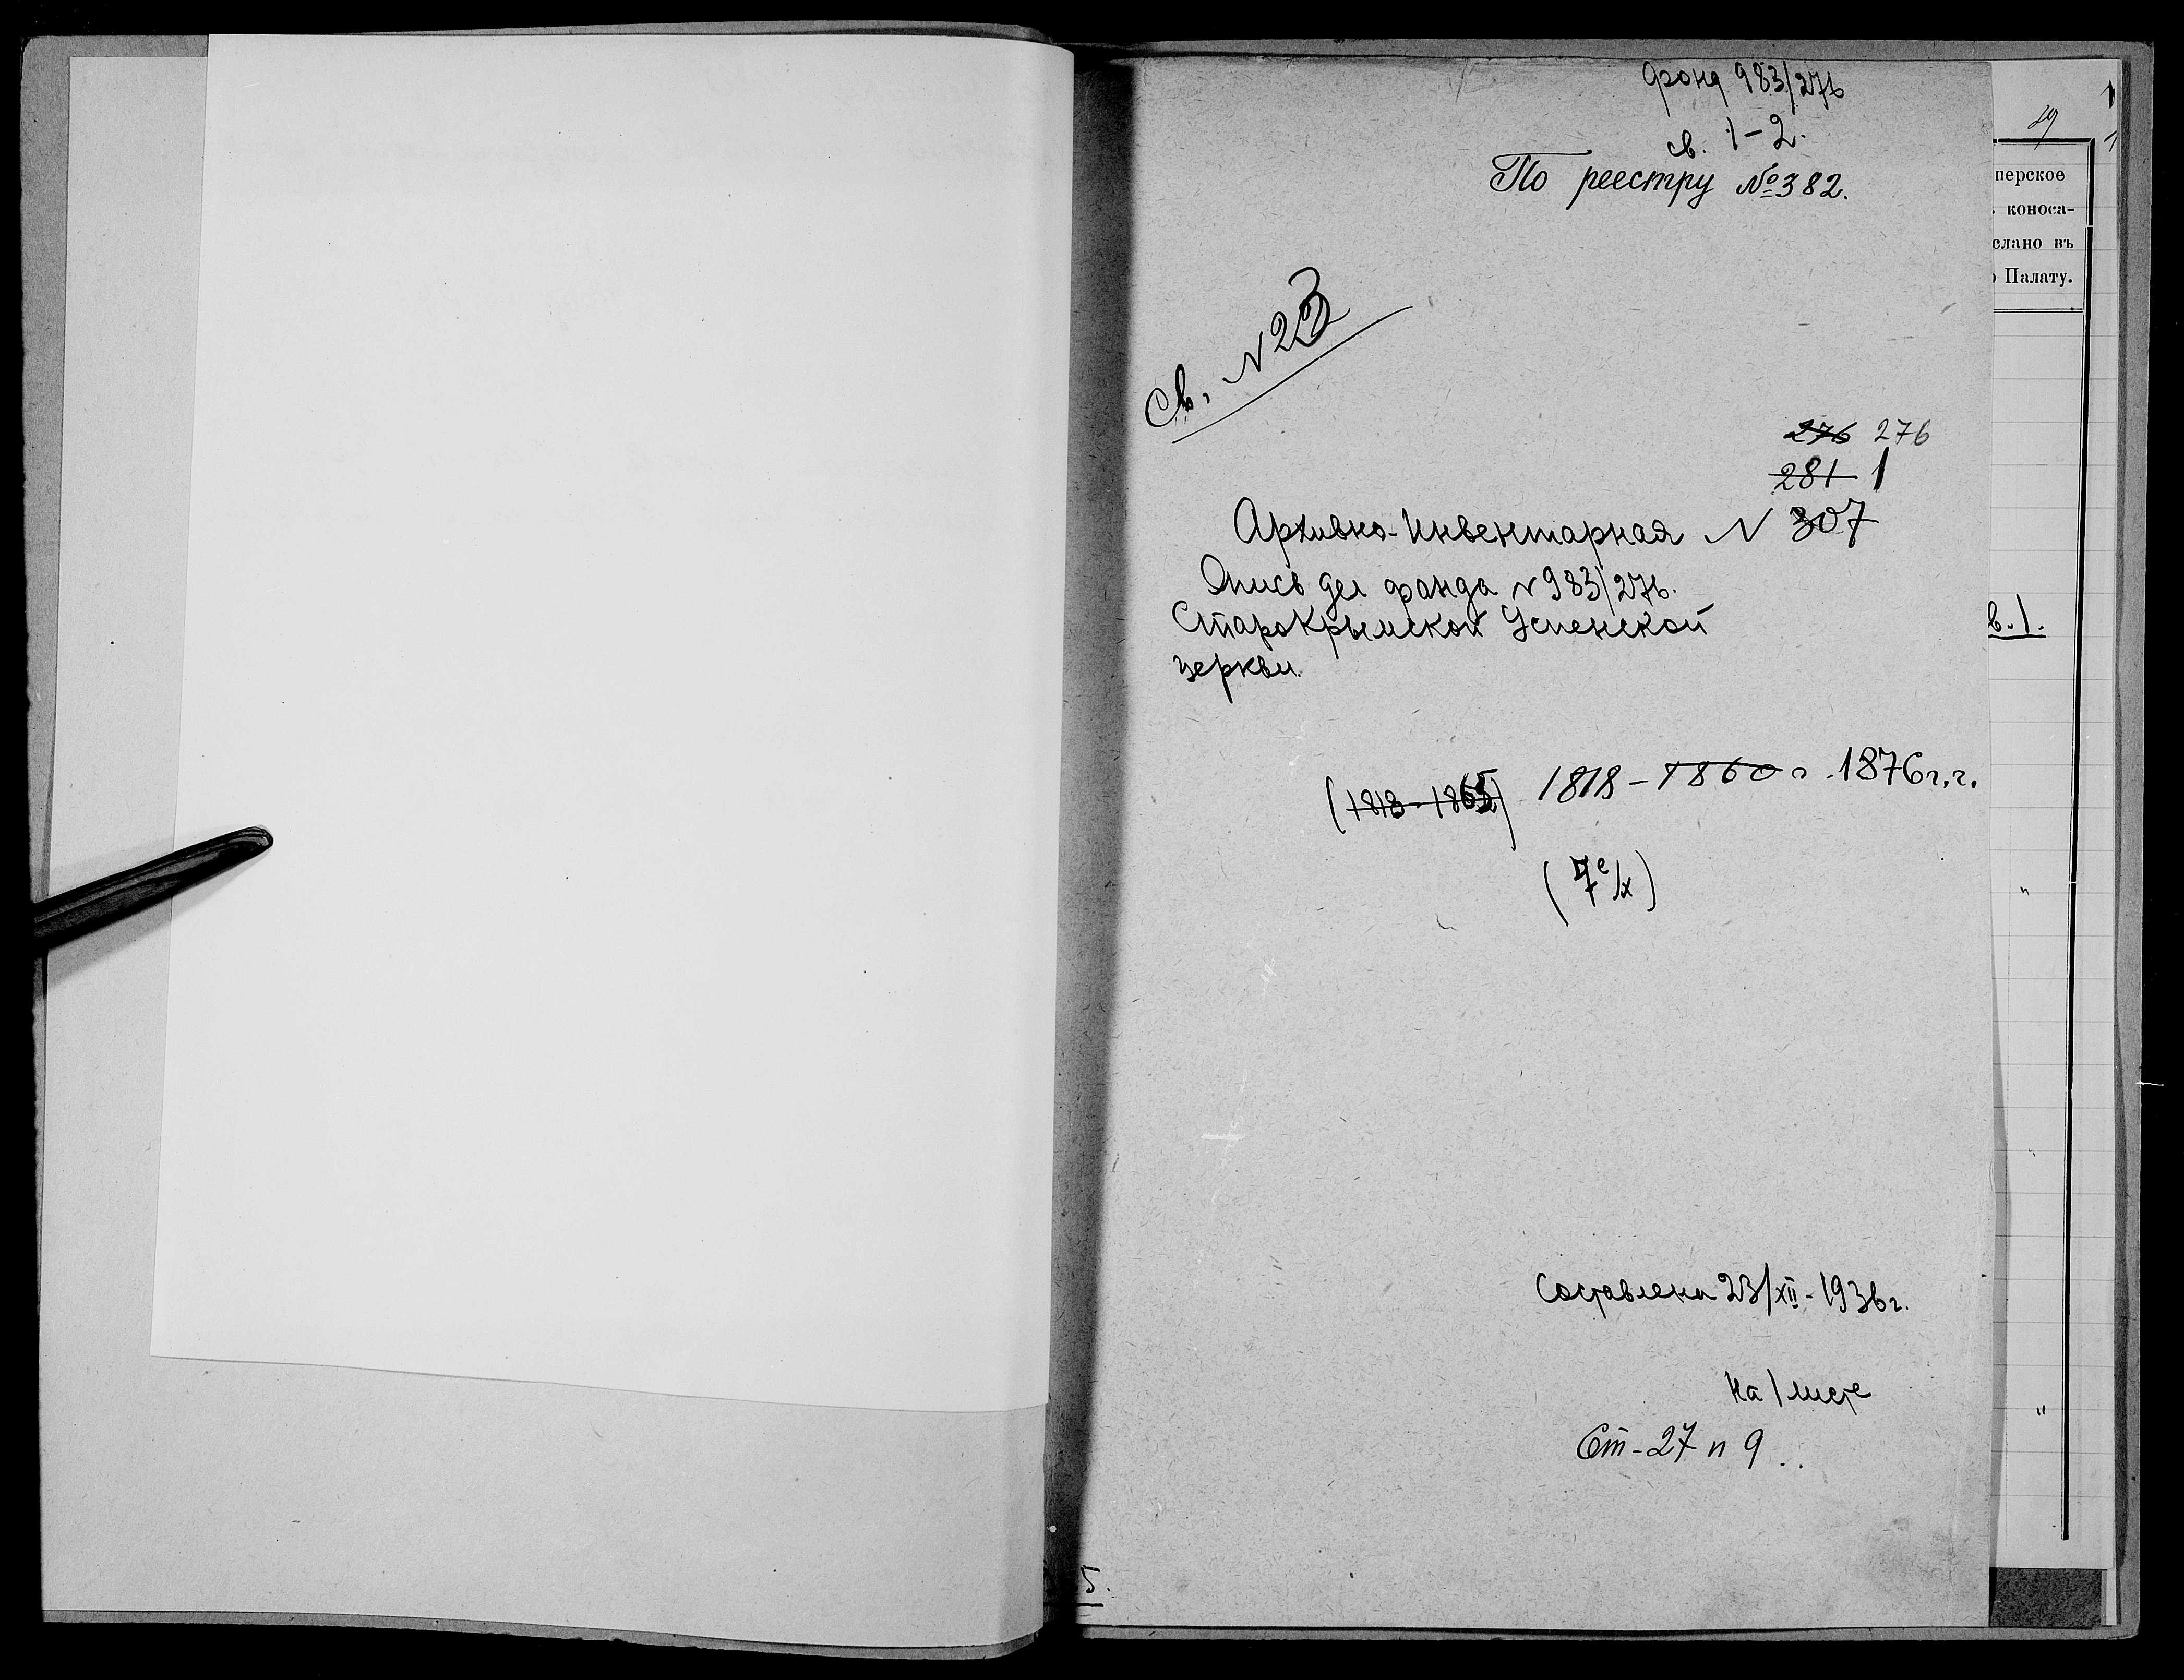 фонд 983/276
св. 1-2.
По реестру №382.
Св. N 23
276 276
281 1
Архивно-Инвентарная N 307
Опись дел фонда N 983/276.
Старокрымской Успенской
церкви.
(1818-1865) 1818-1860 г. 1876 г.г.
(7 е/х)
Составлена 23/XII-1936г.
На 1 листе
Ст-27 п 9..
29
перское
коноса-
слано въ
Палату.
в.1.